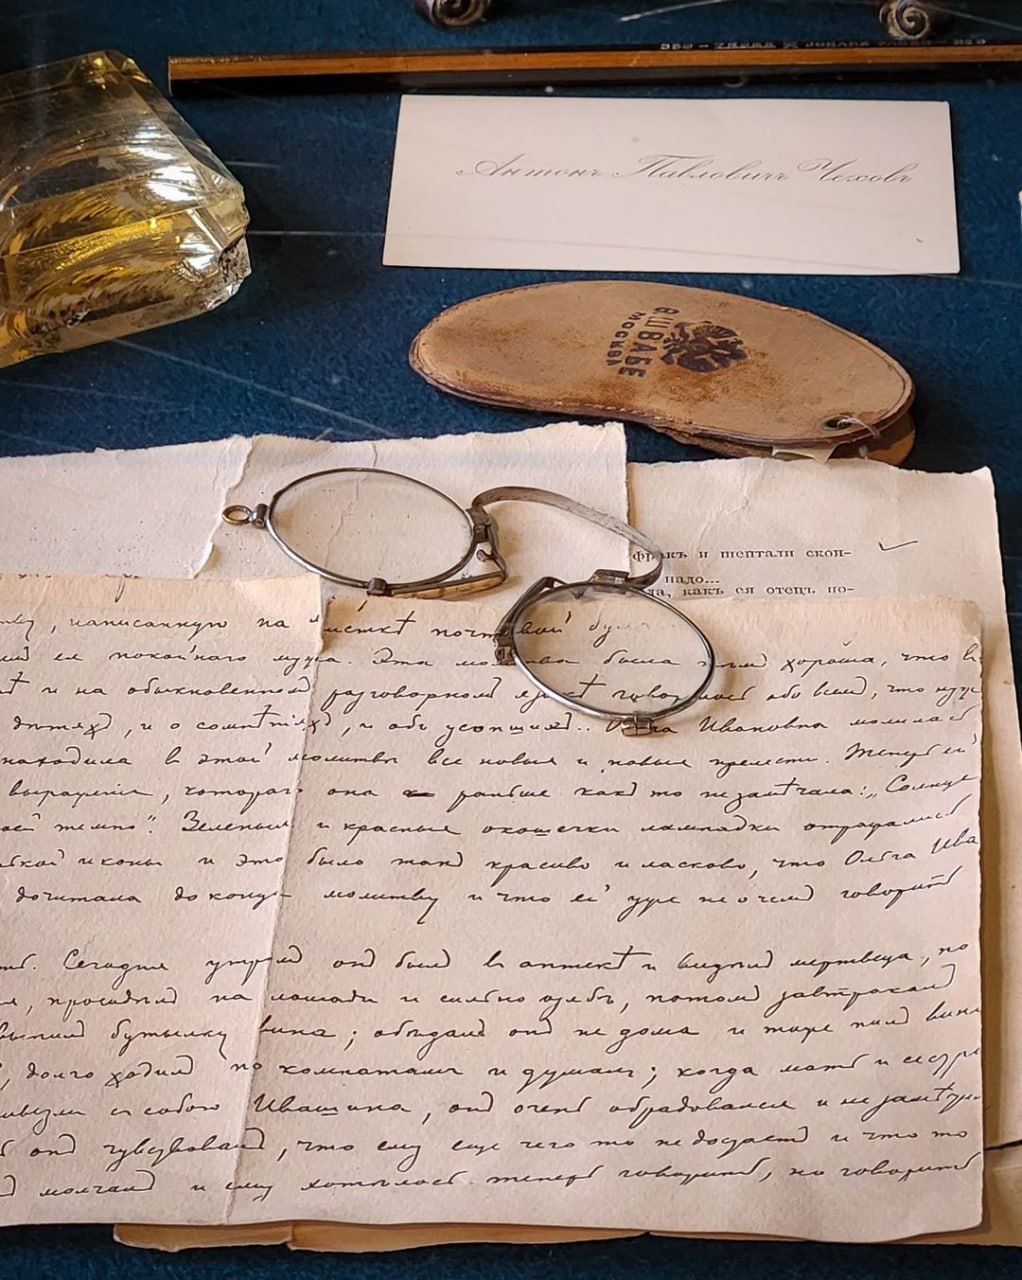 Антонъ Павловичъ Чеховъ
В. ШВАБЕ
МОСКВА
фракъ и шептали скон-
надо...
да, какъ ея отецъ по-
написанную на листкѣ почтовой
ея покойнаго мужа. Эта была хороша, что
и на обыкновенномъ разговорномъ языкѣ обо всемъ, что
дѣтяхъ, и о сомнѣніяхъ, и объ усопшихъ.. Ольга Ивановна молилась
находила в этой молитвѣ все новыя и новыя прелести. Теперь ей
выраженіе, котораго она раньше какъ то не замѣчала: „Солнце
темно". Зеленыя и красныя окошечки лампадки отражались
иконы и это было такъ красиво и ласково, что Ольга Ива
дочитала до конца молитву и что ей уже не о чемъ говорить
Сегодня утромъ онъ былъ в аптекѣ и видѣлъ мертвеца, по
на лошади и сильно озябъ, потомъ завтракалъ
выпилъ бутылку вина; обѣдалъ онъ не дома и тоже пилъ вино
долго ходилъ по комнатамъ и думалъ; когда мать и сестра
привезли с собою Ивашина, онъ очень обрадовался и не
онъ чувствовалъ, что ему еще чего то не достаетъ и что то
молчалъ и ему хотѣлось теперь говорить, но говорить